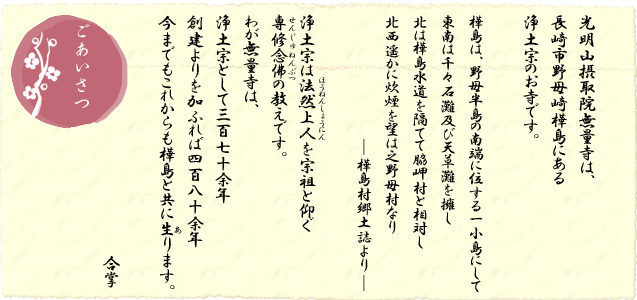 ごあいさつ
光明山摂取院無量寺は、
長崎市野母崎樺島にある
浄土宗のお寺です。
樺島は、野母半島の南端に位する一小島にして
東南は千々石灘及び天草灘を擁し
北は樺島水道を隔てて脇岬村と相対し
北西遙かに炊煙を望は之野母村なり
―樺島村郷土誌より―
浄土宗は法然上人を宗祖と仰ぐ
ほうねんしょうにん
専修念佛の教えです。
せんじゅねんぶつ
わが無量寺は、
浄土宗として三百七十余年
創建よりを加ふれば四百八十余年
今までもこれからも樺島と共に生ります。
あ
合掌